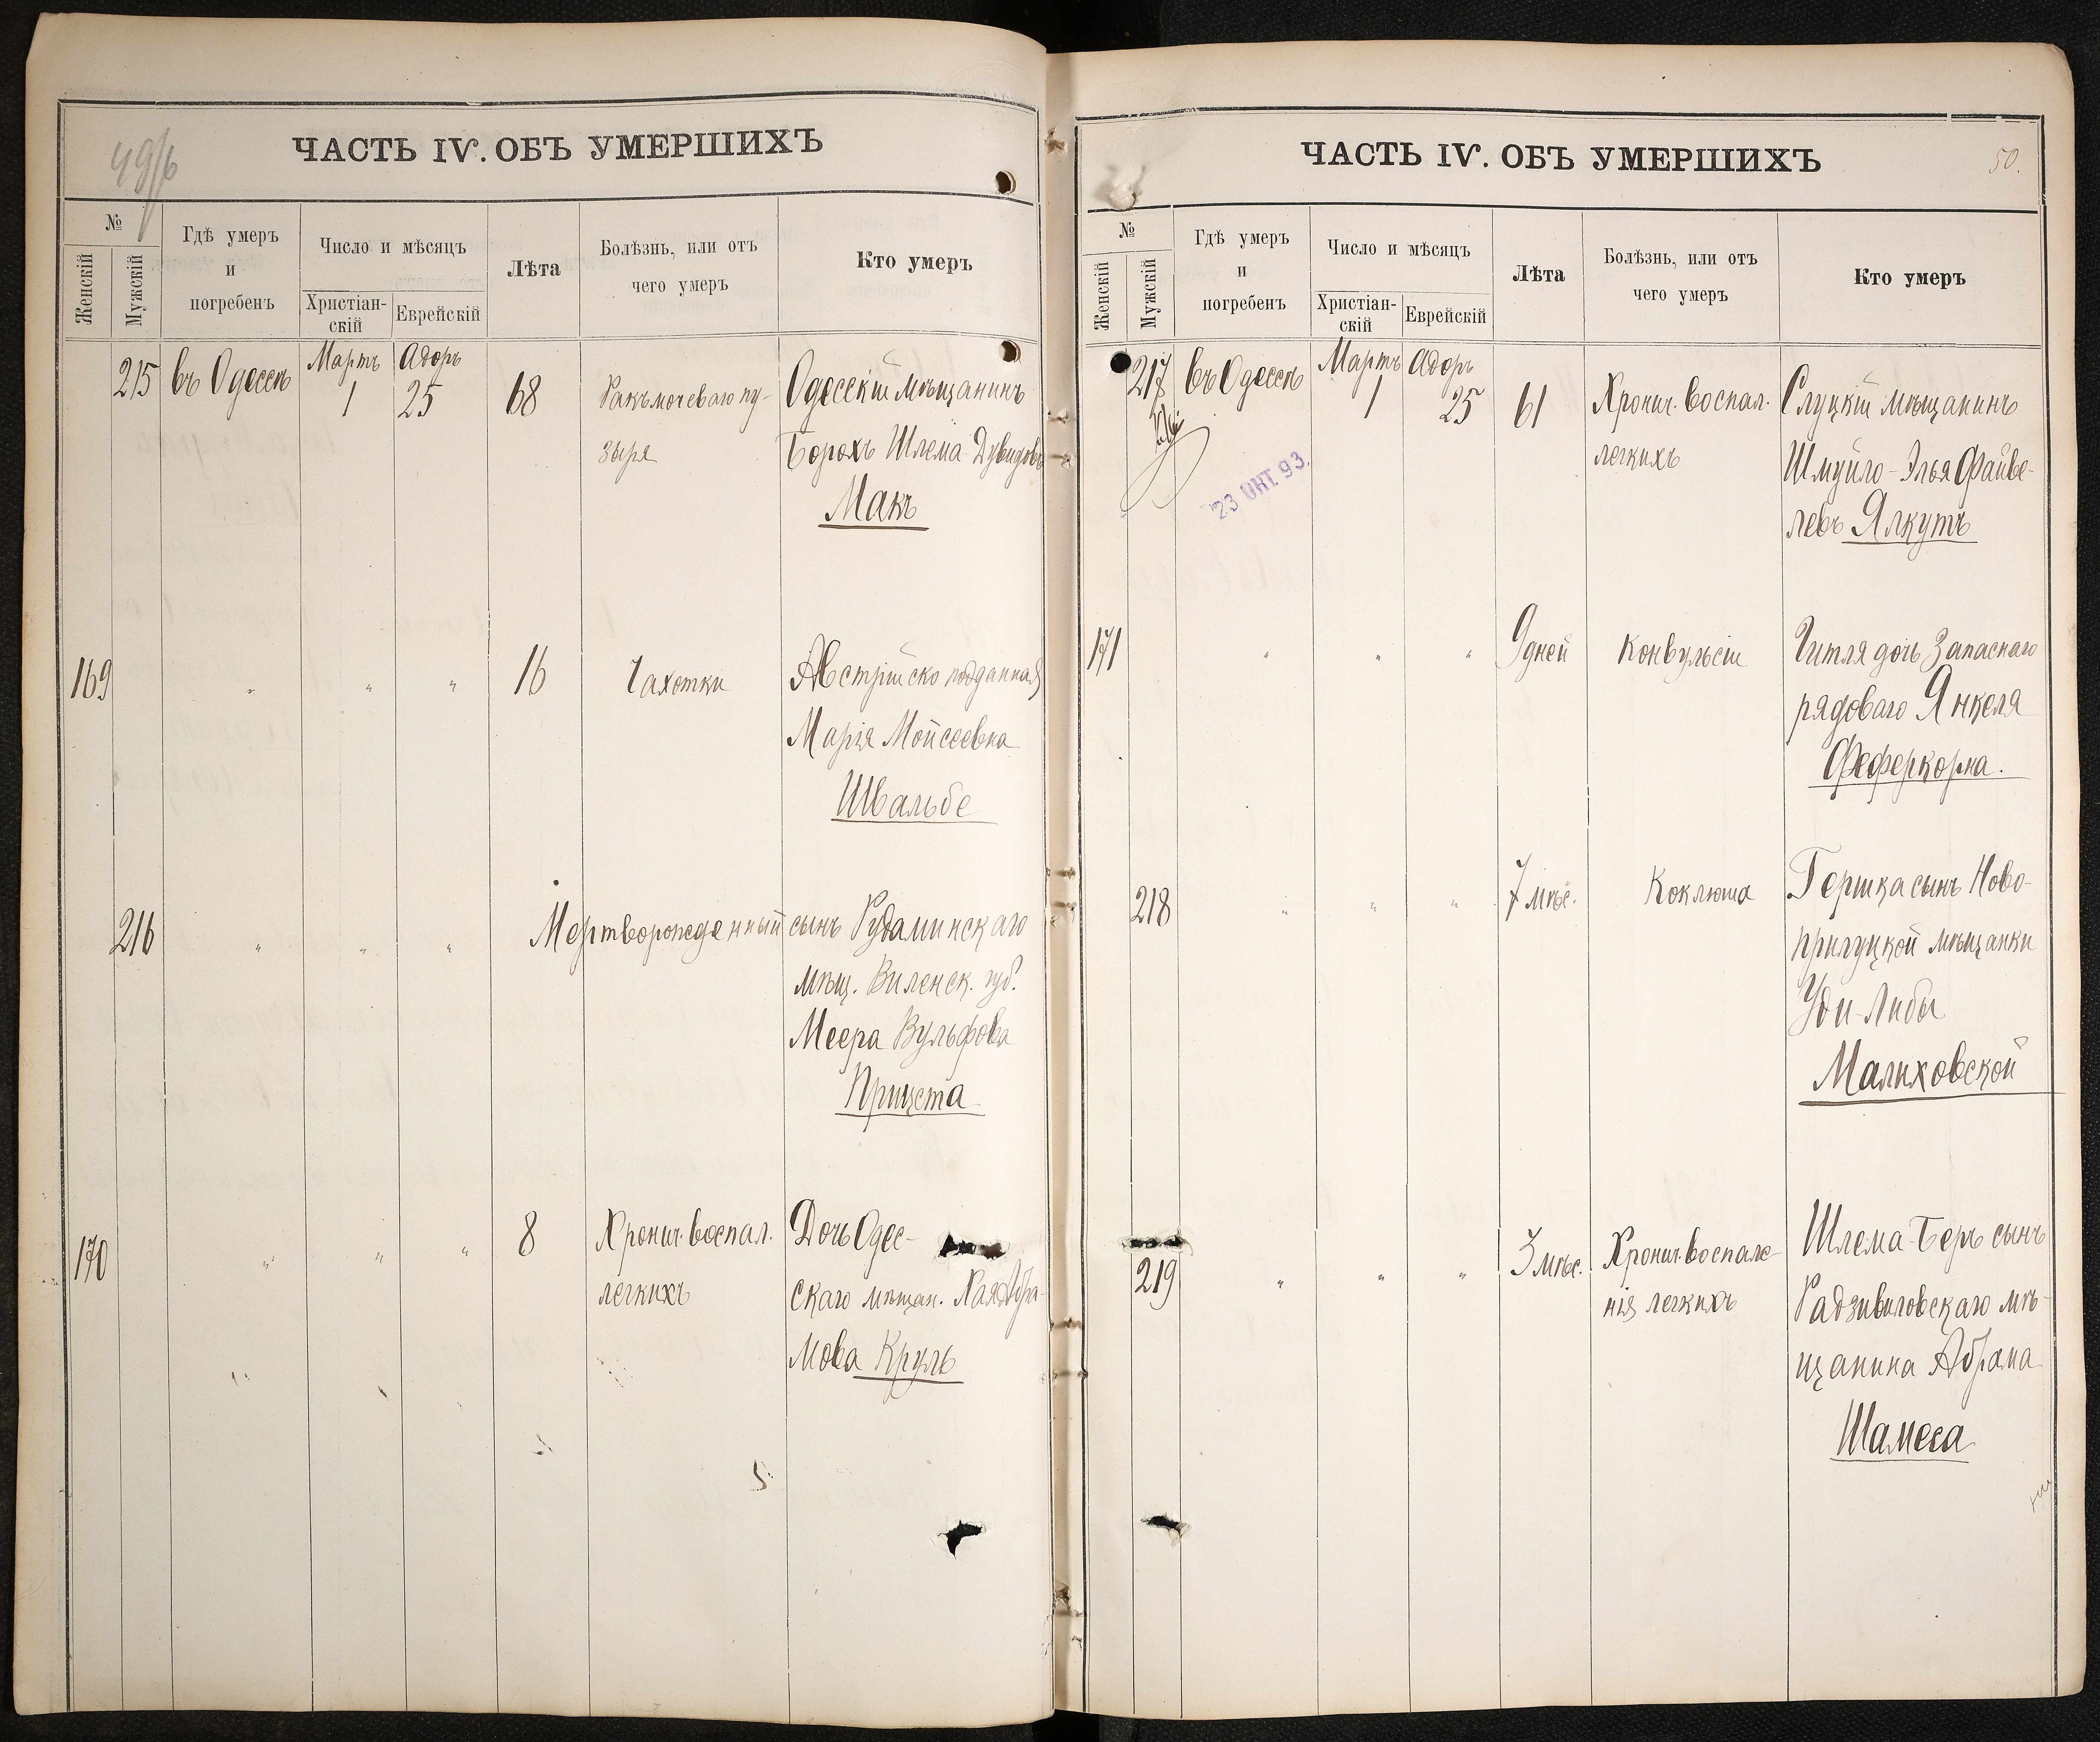 49/б
ЧАСТЬ IV. ОБЪ УМЕРШИХЪ
№
Женскій
Мужскій
Гдѣ умеръ
и
погребенъ
Число и мѣсяцъ
Христіан-
скій
Еврейскій
Лѣта
Болѣзнь, или отъ
чего умеръ
Кто умеръ
215 въ Одессѣ Мартъ 1 Адоръ 25 68 Ракъ мочеваго пу- Одесскій мѣщанинъ
зыря Борохъ Шлема Дувидовъ
Макъ
169 " " " 16 Чахотки Австрійско подданная
Марія Мойсеевна
Швальбе
216 " " " Мертворожденный сынъ Рудаминскаго
мѣщ. Виленск. губ.
Меера Вульфова
170 " " " 8 Хронич. воспал. Дочь Одес-
легкихъ скаго мѣщан. Хая Абра-
мова Круль
ЧАСТЬ IV. ОБЪ УМЕРШИХЪ
50.
№
Женскій
Мужскій
Гдѣ умеръ
и
погребенъ
Число и мѣсяцъ
Христіан-
скій
Еврейскій
Лѣта
Болѣзнь, или отъ
чего умеръ
Кто умеръ
217 въ Одессѣ Мартъ 1 Адоръ 25 61 Хронич. воспал. Слуцкій мѣщанинъ
легкихъ Шмуйло-Элья Файве-
левъ Ялкутъ
23 ОКТ. 93.
171 " " " 9 дней Конвульсіи Гитля дочь Запаснаго
рядоваго Янкеля
Фефер­корна.
218 " " " 7 мѣс. Коклюша Гершка сынъ Ново-
прилуцкой мѣщанки
Уди-Либы
Малиховской
219 " " " 3 мѣс. Хронич. воспале- Шлема-Беръ сынъ
нія легкихъ Радзивиловскаго мѣ-
щанина Абрама
Шамеса